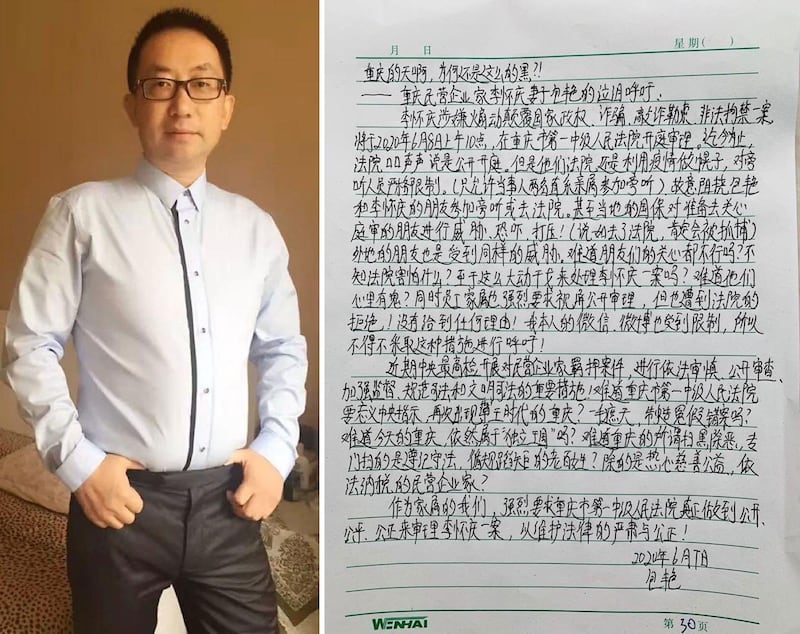 月 日 星期( )
重庆的天啊,为何还是这么的黑?!
—— 重庆民营企业家李怀庆妻子包艳的泣泪呼吁.
李怀庆涉嫌煽动颠覆国家政权、诈骗、敲诈勒索、非法拘禁一案
将于2020年6月8上午10点,在重庆市第一中级人民法院开庭审理。迄今为止,
法院口口声声说是公开开庭。但是他们法院还是利用疫情做幌子,对旁
听人员严格限制。(只允许当事人两名直系亲属参加旁听)故意阻挠包艳
和李怀庆的朋友参加旁听或去法院。甚至当地的国保对准备去关心
庭审的朋友进行威胁、恐吓、打压!(说如去了法院,肯定会被抓捕)
外地的朋友也是受到同样的威胁,难道朋友们的关心都不行吗?不
知法院害怕什么?至于这么大动干戈来处理李怀庆一案吗?难道他们
心里有鬼?同时 家属也强烈要求视屏公开审理,但也遭到法院的
拒绝,!没有给到任何理由!我本人的微信、微博也受到限制,所以
不得不采取这种措施进行呼吁!
近期中央最高检开展对民营企业家羁押案件,进行依法审慎、公开审查、
加强监督、规范司法和文明司法的重要措施!难道重庆市第一中级人民法院
要忘义中央指示,再次出现薄王时代的重庆?一手遮天,制造冤假错案吗?
难道今天的重庆,依然属于"独立王国"吗?难道重庆的所谓扫黑除恶,专
门扫的是遵纪守法, 的老百姓?除的是热心慈善公益、依
法纳税的民营企业家?
作为家属的我们,强烈要求重庆市第一中级人民法院,真正做到公开、
公平、公正来审理李怀庆一案,以维护法律的严肃与公正!
2020年6月7日
包艳
WENHAI 第30页